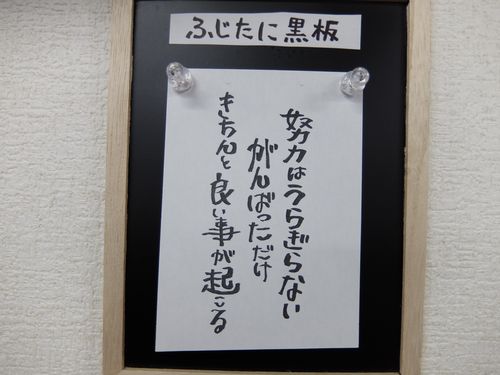 ふじたに黒板
努力はうらぎらない
がんばっただけ
きちんと良い事が起こる